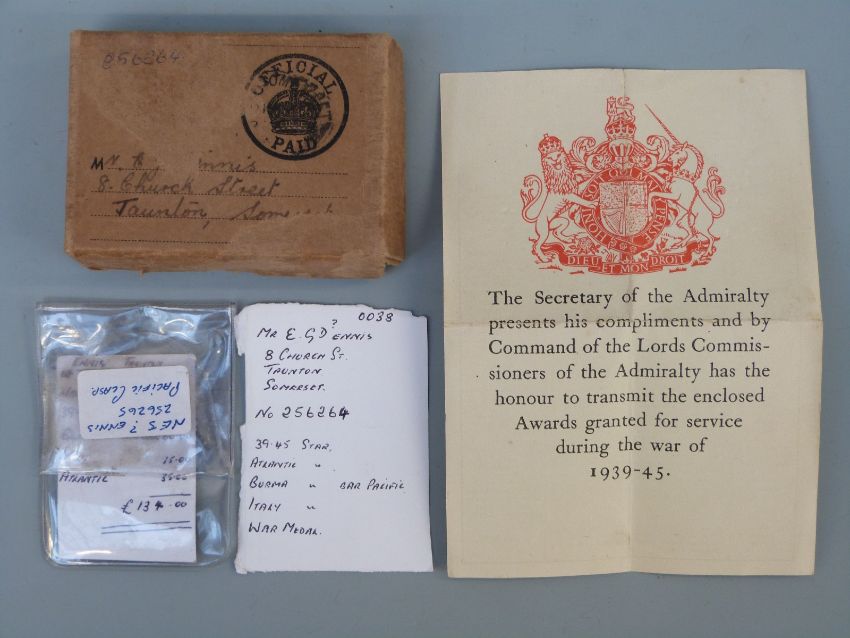 256264
OFFICIAL
PAID
Mr
8 Church Street
Taunton, Somerset
HONI SOIT QUI MAL Y PENSE
DIEU ET MON DROIT
The Secretary of the Admiralty
presents his compliments and by
Command of the Lords Commis-
sioners of the Admiralty has the
honour to transmit the enclosed
Awards granted for service
during the war of
1939-45.
0038
MR E. G D?ENNIS
8 CHURCH ST.
TAUNTON
SOMERSET.
No 256264
39.45 STAR.
ATLANTIC "
BURMA " BAR PACIFIC
ITALY "
WAR MEDAL.
ENNIS TAUNTON
NES ? ENNIS
256265
PACIFIC CLASP.
15.00
ATLANTIC 35.00
£134.00